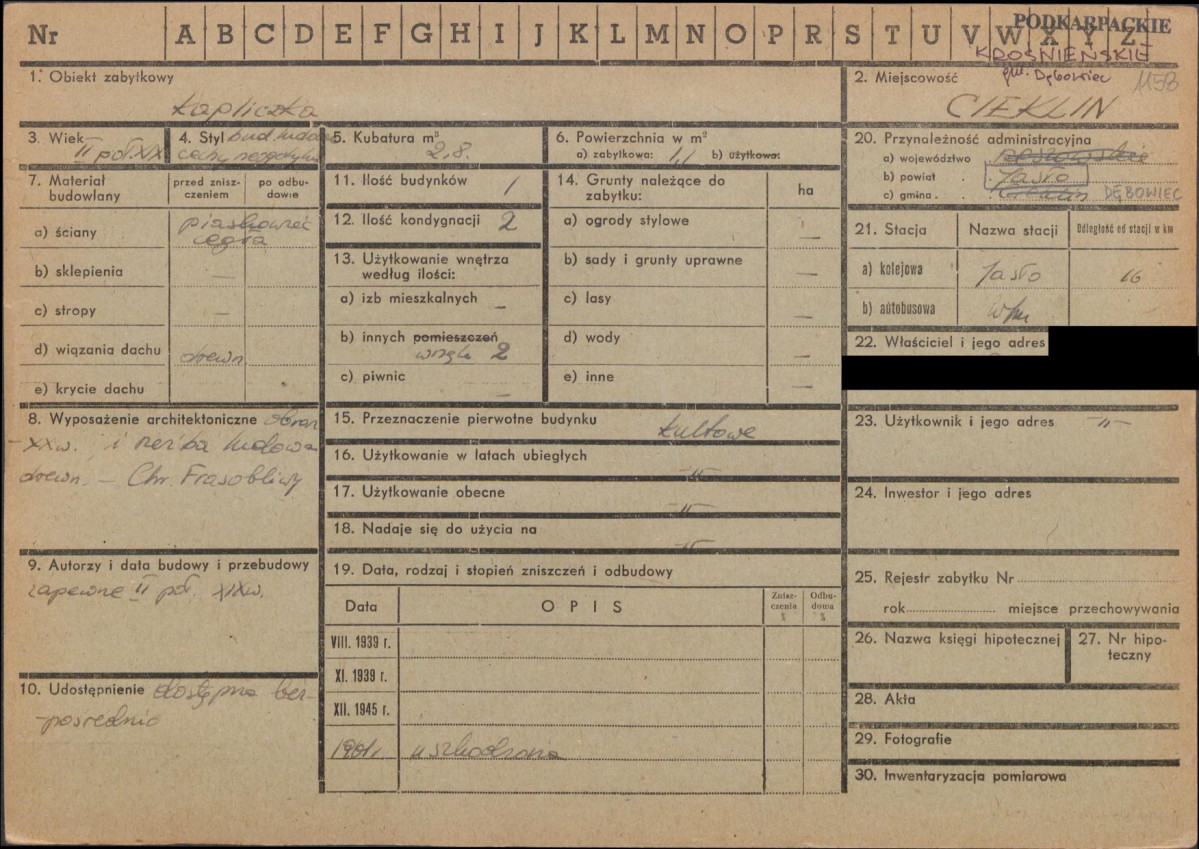 PODKARPACKIE
Nr A B C D E F G H I J K L M N O P R S T U V W X Y Z
KROŚNIEŃSKIE
gm. Dębowiec
1153
1. Obiekt zabytkowy
Kapliczka
2. Miejscowość
CIEKLIN
3. Wiek
II poł. XIX
4. Styl bud. ludow
cechy neogotyku
5. Kubatura m³
2,8.
6. Powierzchnia w m²
a) zabytkowa: 1,1 b) użytkowa:
20. Przynależność administracyjna
a) województwo rzeszowskie
b) powiat Jasło
c) gmina DĘBOWIEC
7. Materiał budowlany
przed zniszczeniem
po odbudowie
a) ściany piaskowiec
cegła
b) sklepienia —
c) stropy —
d) wiązania dachu drewn.
e) krycie dachu
11. Ilość budynków 1
12. Ilość kondygnacji 2
13. Użytkowanie wnętrza
według ilości:
a) izb mieszkalnych —
b) innych pomieszczeń
wnęk 2
c) piwnic —
14. Grunty należące do
zabytku:
ha
a) ogrody stylowe —
b) sady i grunty uprawne —
c) lasy —
d) wody —
e) inne —
21. Stacja
Nazwa stacji
Odległość od stacji w km
a) kolejowa Jasło 16
b) autobusowa w/m
22. Właściciel i jego adres
8. Wyposażenie architektoniczne obraz
XX w. i rzeźba ludowa
drewn. – Chr. Frasobliwy
15. Przeznaczenie pierwotne budynku
kultowe
16. Użytkowanie w latach ubiegłych
—"—
17. Użytkowanie obecne
—"—
18. Nadaje się do użycia na
—"—
23. Użytkownik i jego adres —"—
24. Inwestor i jego adres
9. Autorzy i data budowy i przebudowy
zapewne II poł. XIX w.
10. Udostępnienie dostępna bez-
-pośrednio
19. Data, rodzaj i stopień zniszczeń i odbudowy
Data
OPIS
Znisz-
czenia
%
Odbu-
dowa
%
VIII. 1939 r.
XI. 1939 r.
XII. 1945 r.
1961 r. uszkodzona
25. Rejestr zabytku Nr
rok miejsce przechowywania
26. Nazwa księgi hipotecznej
27. Nr hipo-
teczny
28. Akta
29. Fotografie
30. Inwentaryzacja pomiarowa